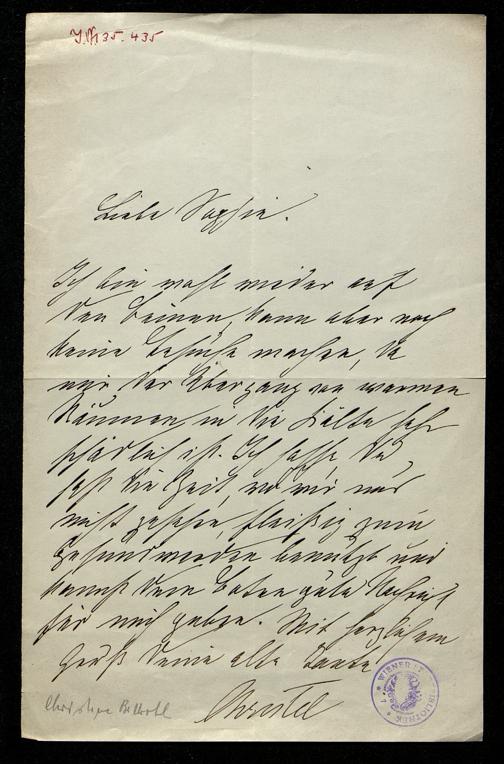 J.N. 135.435
Liebe Sophie.
Ich bin wohl wieder auf
den Beinen, kann aber noch
keine Besuche machen, da
mir der Übergang von warmen
Räumen in die Kälte sehr
schädlich ist. Ich hoffe Du
hast die Zeit, wo wir uns
nicht gesehen, fleißig zum
Gesundwerden benutzt und
kannst dem Boten gute Nachricht
für mich geben. Mit herzlichem
Gruß Deine alte Tante
Christel
Christine Billroth
WIENER ST BIBLIOTHEK